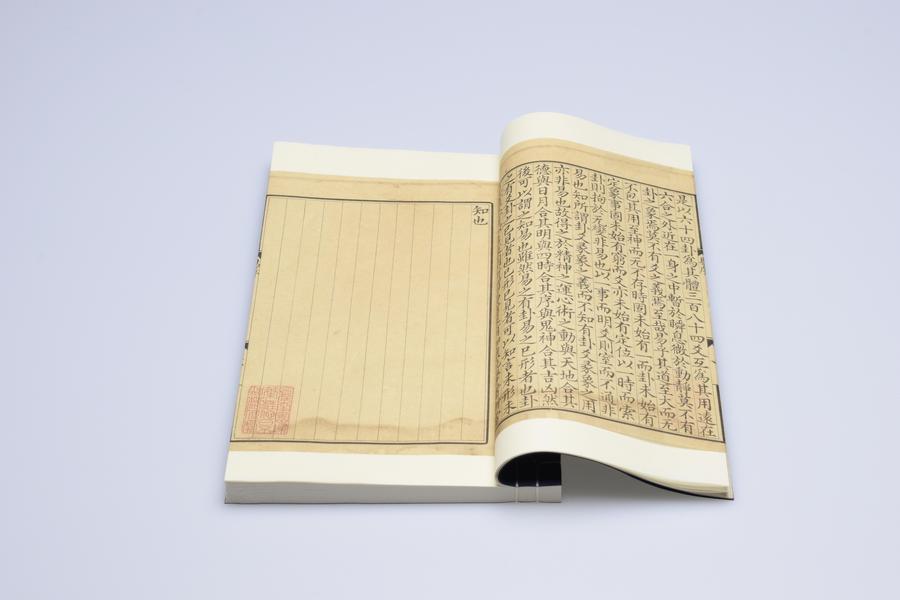 是以六十四卦為其體三百八十四爻互為其用遠在
六合之外近在一身之中暫於瞬息微於動靜莫不有
卦之象焉莫不有爻之義焉至哉易乎其道至大而无
不包其用至神而无不存時固未始有一而卦未始有
定象事固未始有窮而爻亦未始有定位以一時而索
卦則拘於无變非易也以一事而明爻則窒而不通非
易也知所謂卦爻彖象之義而不知有卦爻彖象之用
亦非易也故得之於精神之運心術之動與天地合其
德與日月合其明與四時合其序與鬼神合其吉凶然
後可以謂之知易也雖然易之有卦易之已形者也卦
之有爻卦之已見者也已形已見者可以知言未形未
知也